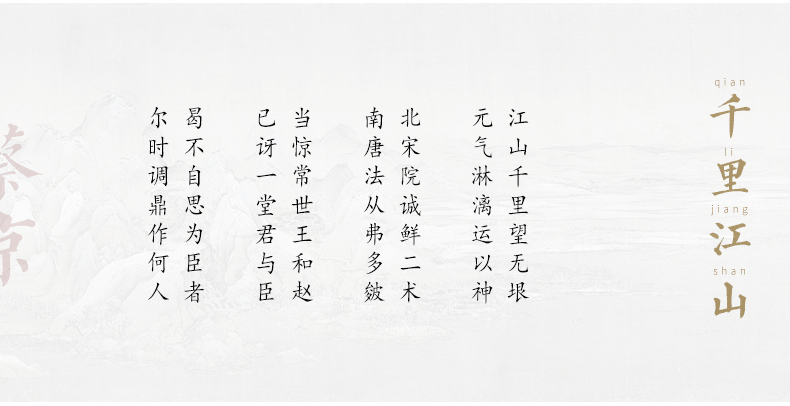 qian
千
li
里
jiang
江
shan
山
江山千里望无垠
元气淋漓运以神
北宋院诚鲜二术
南唐法从弗多皴
当惊常世王和赵
已讶一堂君与臣
曷不自思为臣者
尔时调鼎作何人
蔡京